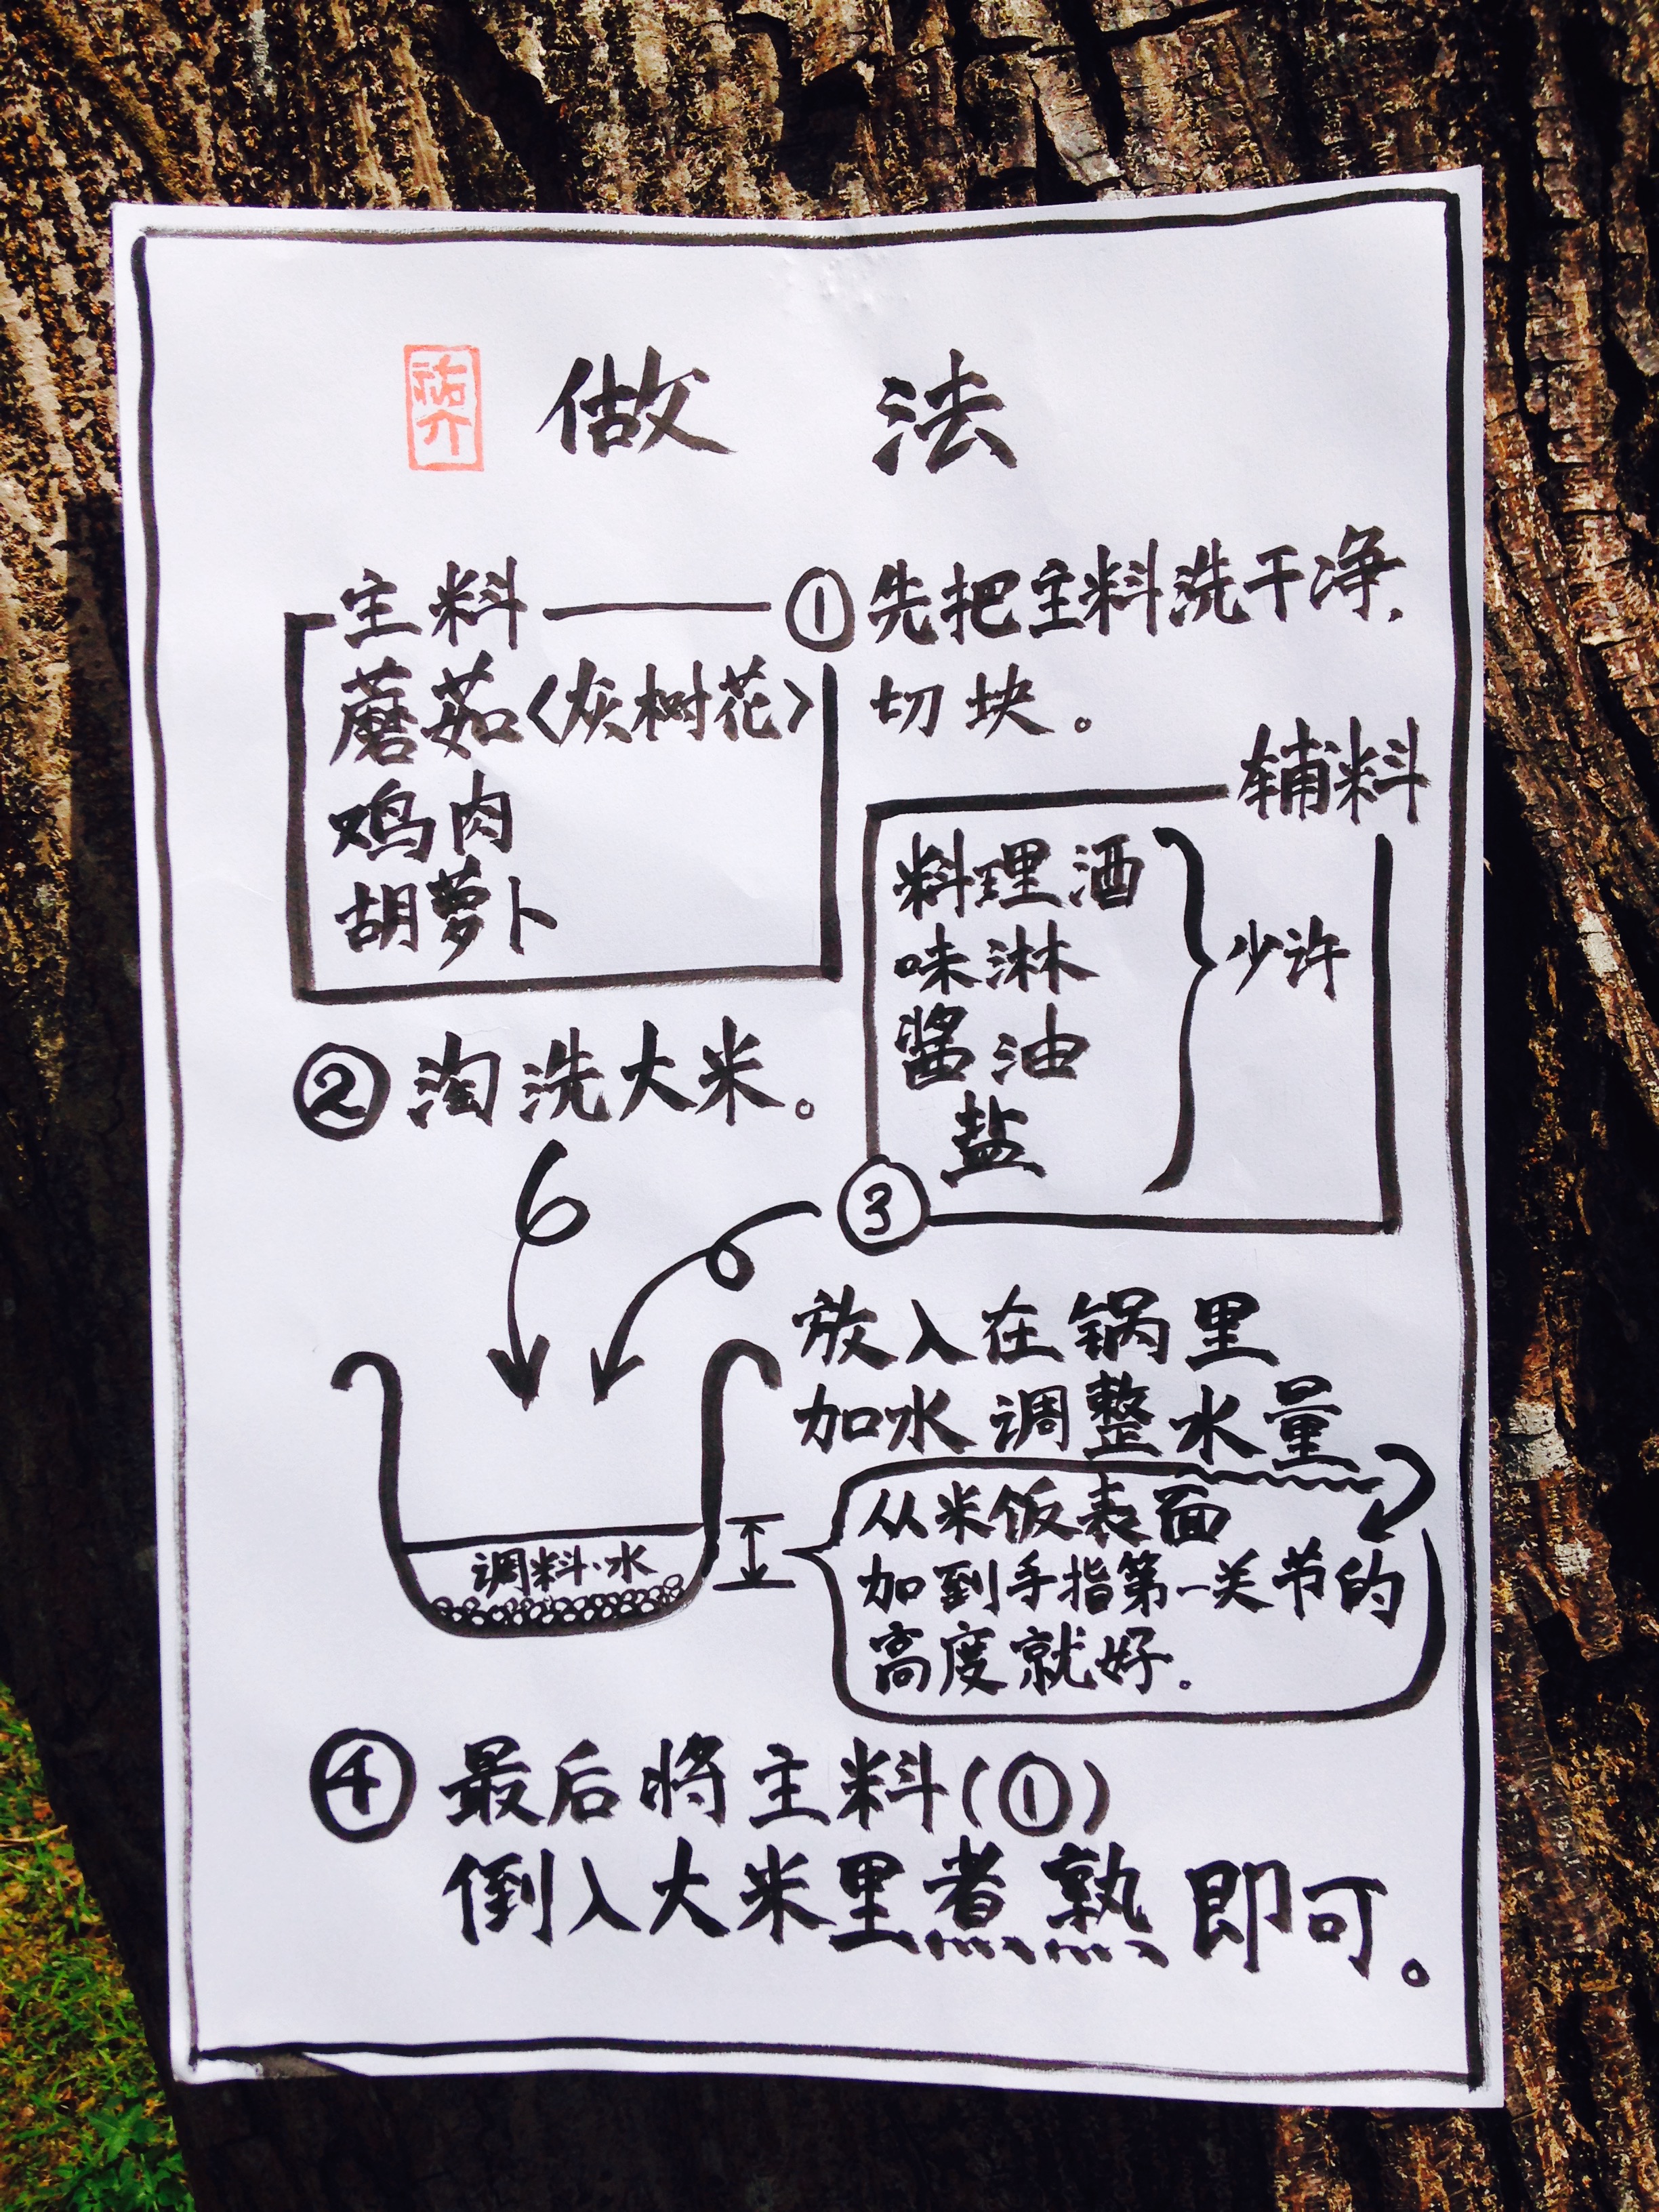 祐介
做 法
主料
蘑茹〈灰树花〉
鸡肉
胡萝卜
①先把主料洗干净,
切块。
辅料
料理酒
味淋
酱油
盐
少许
②淘洗大米。
③
放入在锅里
加水调整水量
从米饭表面
加到手指第一关节的
高度就好。
调料·水
④最后将主料(①)
倒入大米里煮熟即可。